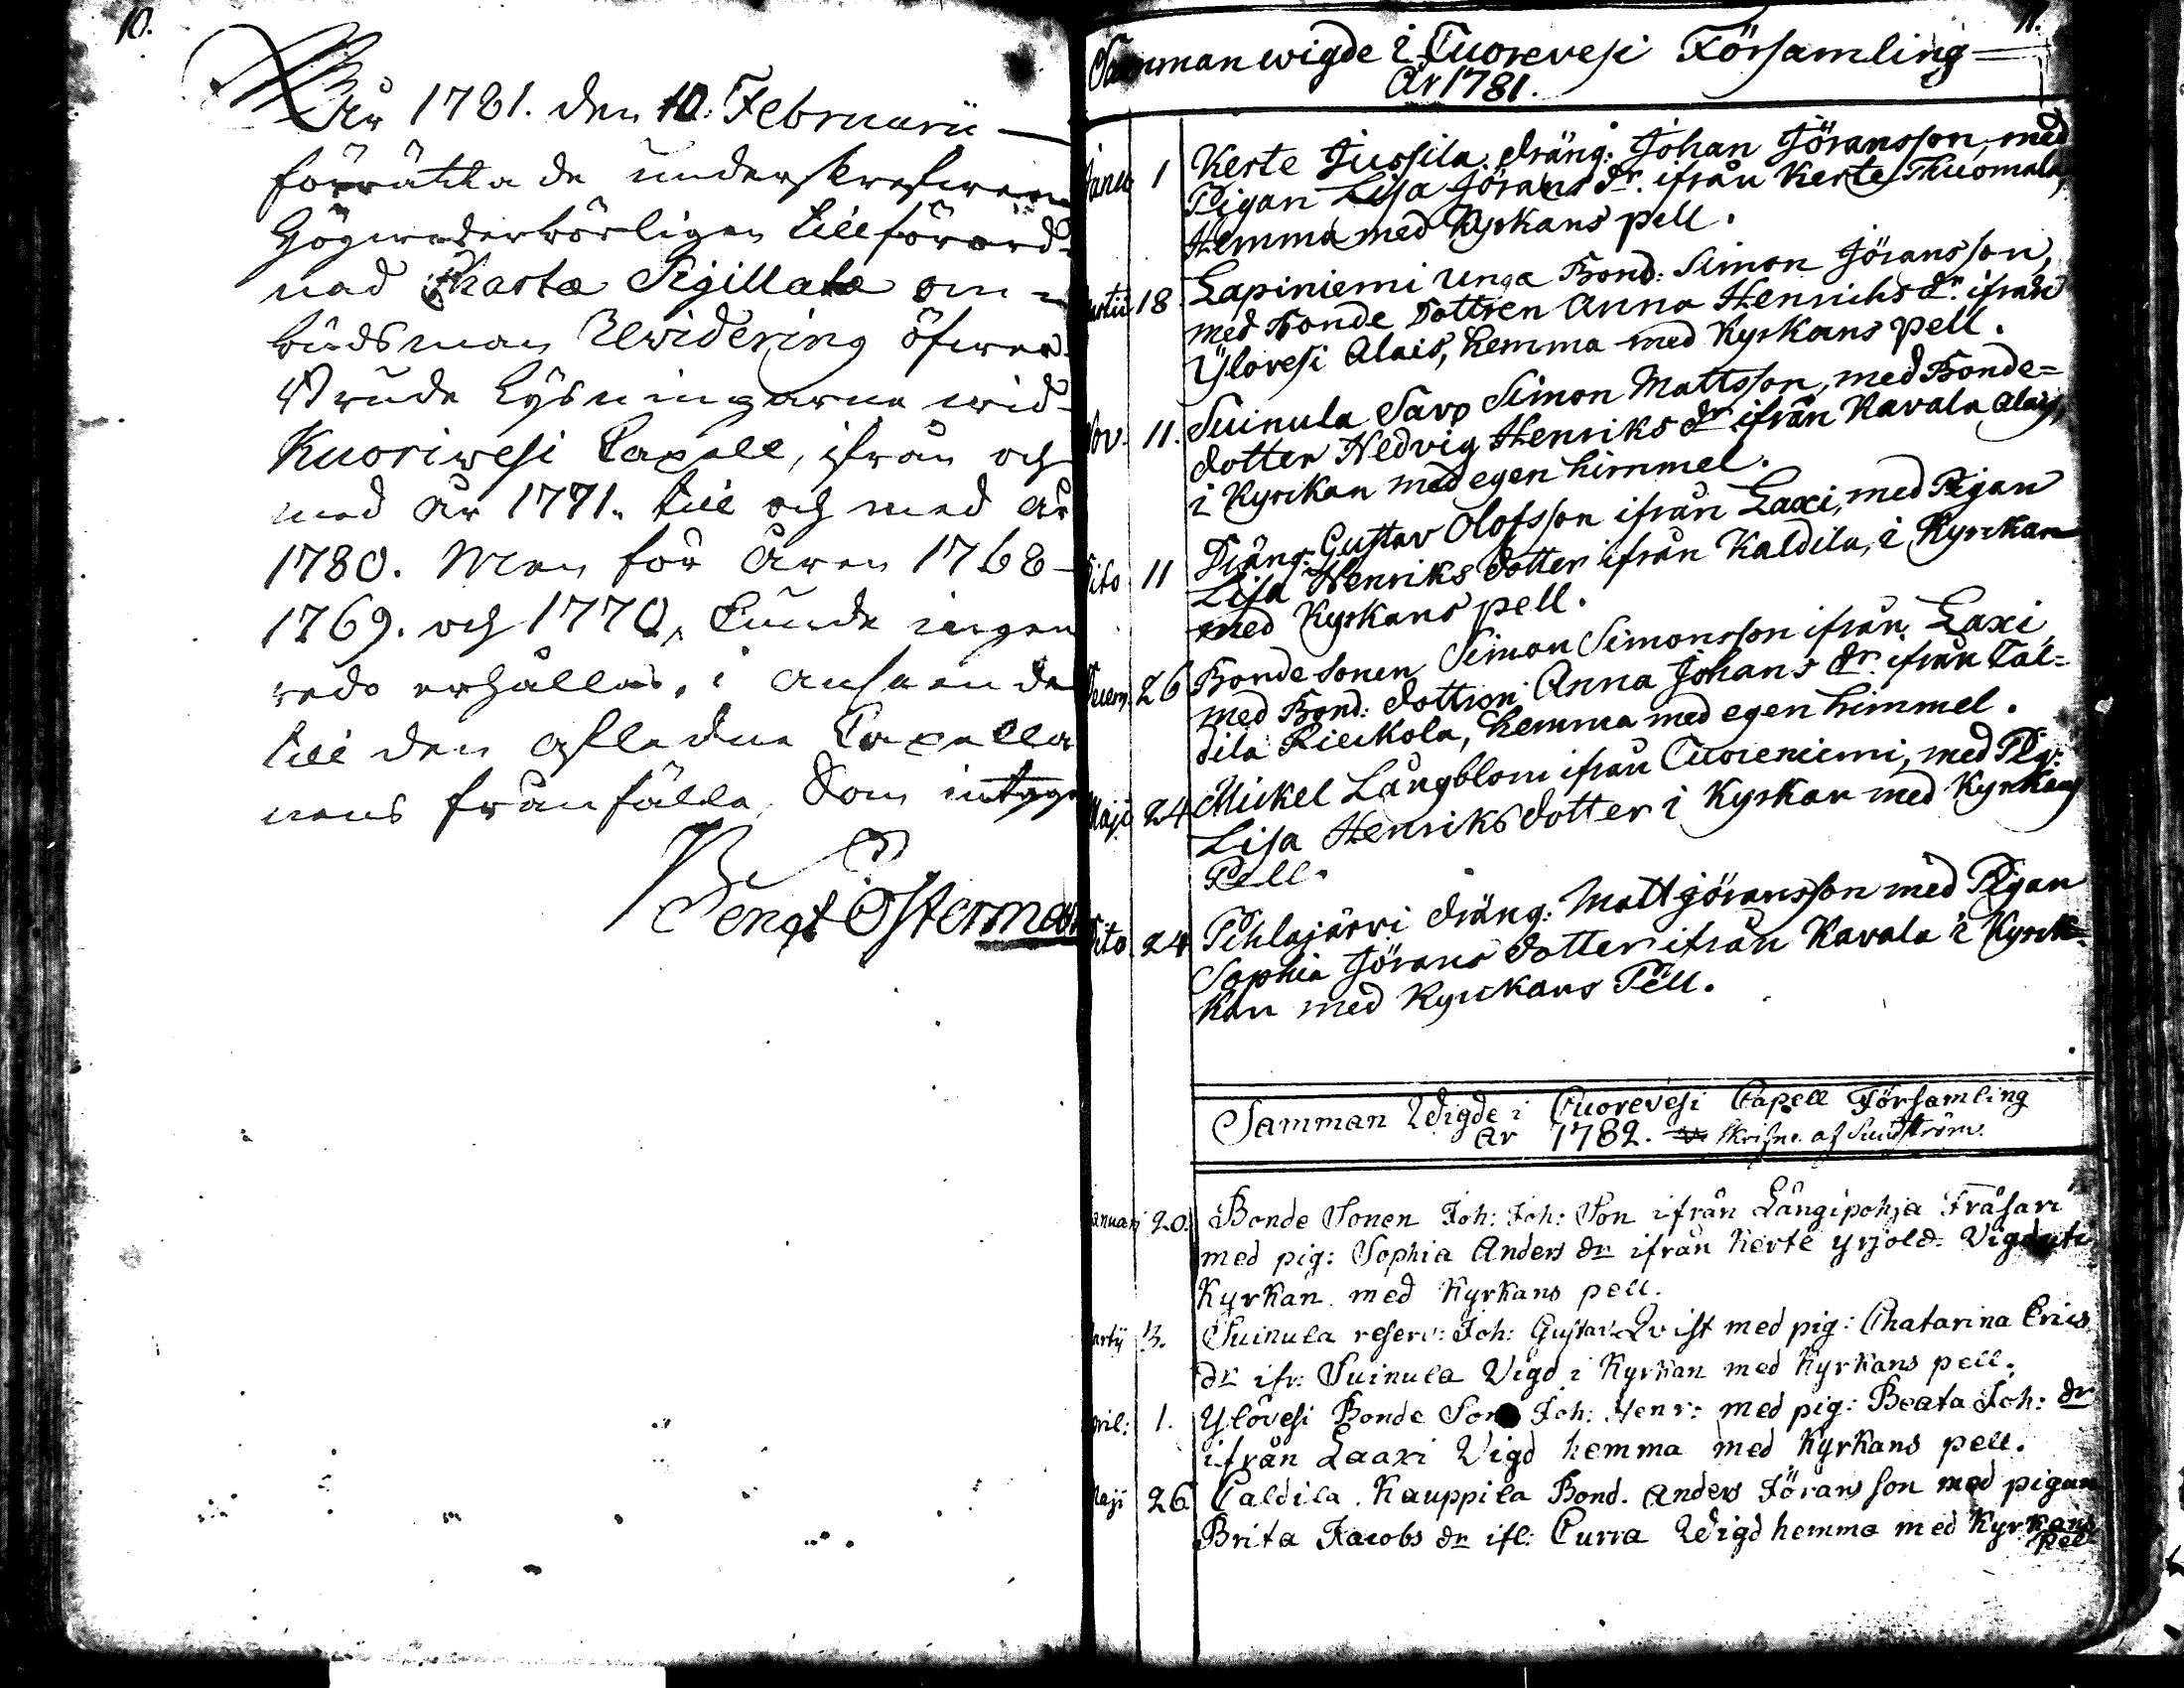 10.
År 1781. den 10. Februarii
förrättade underskrefwen
Högwederbörligen tillförord-
nad Charta Sigillata om=
budsman Uwidering öfwer
Brude Lysningarna wid
Kuoriwesi Capell, ifrån och
med år 1771. till och med år
1780. Men för åren 1768-
1769. och 1770, kunde ingen
redo erhållas, i anseende
till den afledne Capella
nens frånfälle, Som intyga
Bengt Österman
11.
Samman wigde i Cuorevesi Församling
År 1781.
Janu 1 Kerte Jussila dräng: Johan Jöransson, med
Pigan Lisa Jörans dr. ifrån Kerte Thuomala,
Hemma med Kyrkans pell.
Martii 18 Lapiniemi unga Bond: Simon Jöransson,
med Bonde Dottren Anna Henrichs dr. ifrån
Ylövesi Alais, hemma med Kyrkans pell.
Nov. 11. Suinula Savo Simon Mattsson, med Bonde=
dotter Hedvig Henriks dr ifrån Kavala Alais,
i Kyrckan med egen himmel.
Dito 11 Dräng: Gustav Olofsson ifrån Laxi, med Pigan
Lisa Henriks dotter ifrån Kaldila, i Kyrckan
med Kyrkans pell.
Decem. 26 Bonde sonen Simon Simonsson ifrån Laxi,
med Bond: dottren Anna Johans dr. ifrån Cal=
dila Rieckola, hemma med egen himmel.
Maji 24 Mickel Långblom ifrån Cuoreniemi, med Pig:
Lisa Henriks dotter i Kyrkan med Kyrkans
Pell.
Dito 24 Pihlajärvi dräng: Matt göransson med Pigan
Sophia Jörans dotter ifrån Kavala i Kyrck=
kan med Kyrckans Pell.
Samman Wigde i Cuorevesi Capell Församling
år 1782. skrifne af Sundström.
Januari 20. Bonde Sonen Joh: Joh: Son ifrån Längipohja Fräsari
med pig: Sophia Anders dr ifrån Kerte yrjold. Vigd uti
Kyrkan med Kyrkans pell.
Martij 3. Suinula reserv: Joh: Gustav Qvist med pig: Chatarina Erics
dr ifr: Suinula Vigd i Kyrkan med Kyrkans pell.
April: 1. Ylövesi Bonde Son Joh: Henr: med pig: Beata Joh: dr
ifrån Laaxi Vigd hemma med Kyrkans pell.
Maji 26 Caldila Kauppila Bond. Anders Jörans son med pigan
Brita Jacobs dr ifr: Curra Wigd hemma med Kyrkans
pell